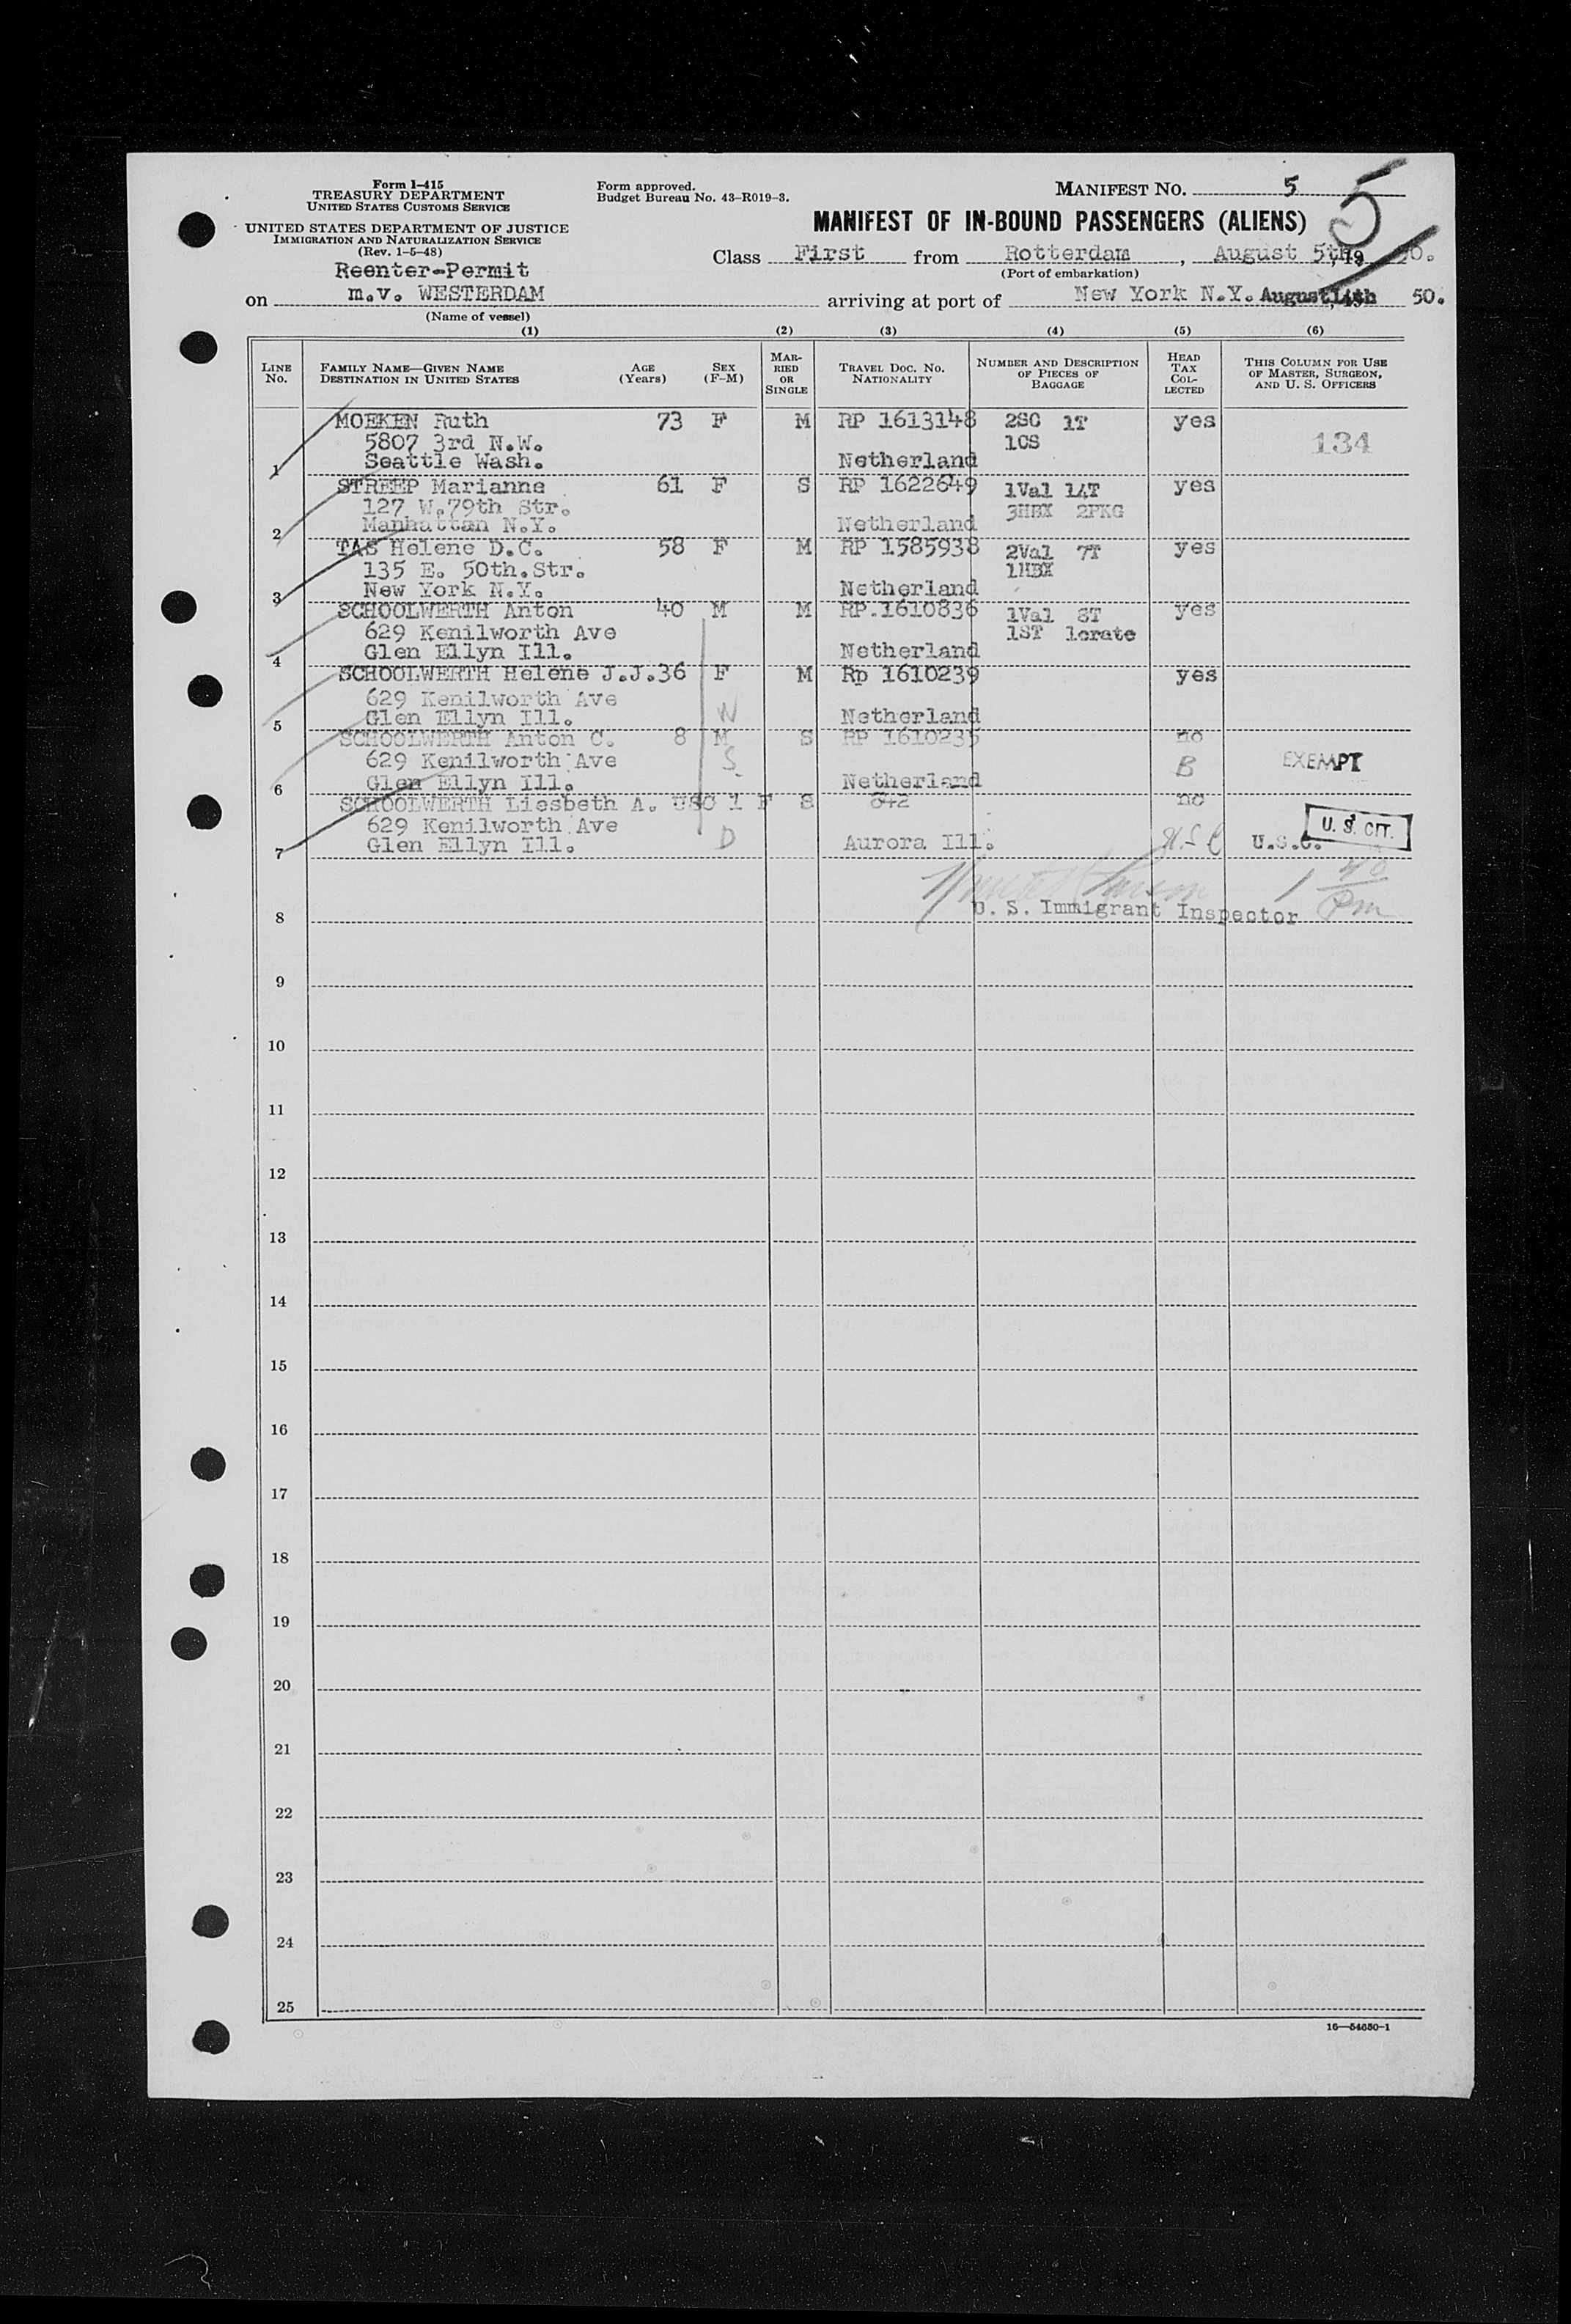 Form I-415
TREASURY DEPARTMENT
UNITED STATES CUSTOMS SERVICE
UNITED STATES DEPARTMENT OF JUSTICE
IMMIGRATION AND NATURALIZATION SERVICE
(Rev. 1-5-48)
Form approved.
Budget Bureau No. 43-R019-3.
MANIFEST NO. 5
5
MANIFEST OF IN-BOUND PASSENGERS (ALIENS)
Class First from Rotterdam, August 5th, 19 50.
(Port of embarkation)
Reenter-Permit
on m.v. WESTERDAM arriving at port of New York N.Y. August 14th 50.
(Name of vessel)
(1) (2) (3) (4) (5) (6)
LINE No. FAMILY NAME—GIVEN NAME DESTINATION IN UNITED STATES AGE (Years) SEX (F-M) MARRIED OR SINGLE TRAVEL DOC. NO. NATIONALITY NUMBER AND DESCRIPTION OF PIECES OF BAGGAGE HEAD TAX COLLECTED THIS COLUMN FOR USE OF MASTER, SURGEON, AND U. S. OFFICERS
MOEKEN Ruth 73 F M RP 1613148 2SC 1T yes
5807 3rd N.W. 1CS 134
1 Seattle Wash. Netherland
STREEP Marianne 61 F S RP 1622649 1Val 1AT yes
127 W.79th Str. 3HBX 2PKG
2 Manhattan N.Y. Netherland
TAS Helene D.C. 58 F M RP 1585938 2Val 7T yes
135 E. 50th.Str. 1HBX
3 New York N.Y. Netherland
SCHOOLWERTH Anton 40 M M RP.1610836 1Val 8T yes
629 Kenilworth Ave 1ST 1crate
4 Glen Ellyn Ill. Netherland
SCHOOLWERTH Helene J.J. 36 F M Rp 1610239 yes
629 Kenilworth Ave W
5 Glen Ellyn Ill. Netherland
SCHOOLWERTH Anton C. 8 M S RP 1610235 no
629 Kenilworth Ave S B EXEMPT
6 Glen Ellyn Ill. Netherland
SCHOOLWERTH Liesbeth A. USC 1 F S 842 no
629 Kenilworth Ave U. S. CIT.
7 Glen Ellyn Ill. D Aurora Ill. U.S.C.
1 40 Pm
8 U. S. Immigrant Inspector
9
10
11
12
13
14
15
16
17
18
19
20
21
22
23
24
25
16—54650-1